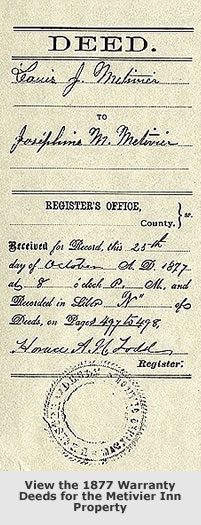 DEED.
Louis J. Metivier
TO
Josephine M. Metivier
REGISTER'S OFFICE,
County. } ss.
Received for Record, this 25th
day of October A. D. 1877
at 8 o'clock P. M., and
Recorded in Liber "N" of
Deeds, on Pages 497 to 498,
Horace A. N. Todd
Register.
View the 1877 Warranty
Deeds for the Metivier Inn
Property